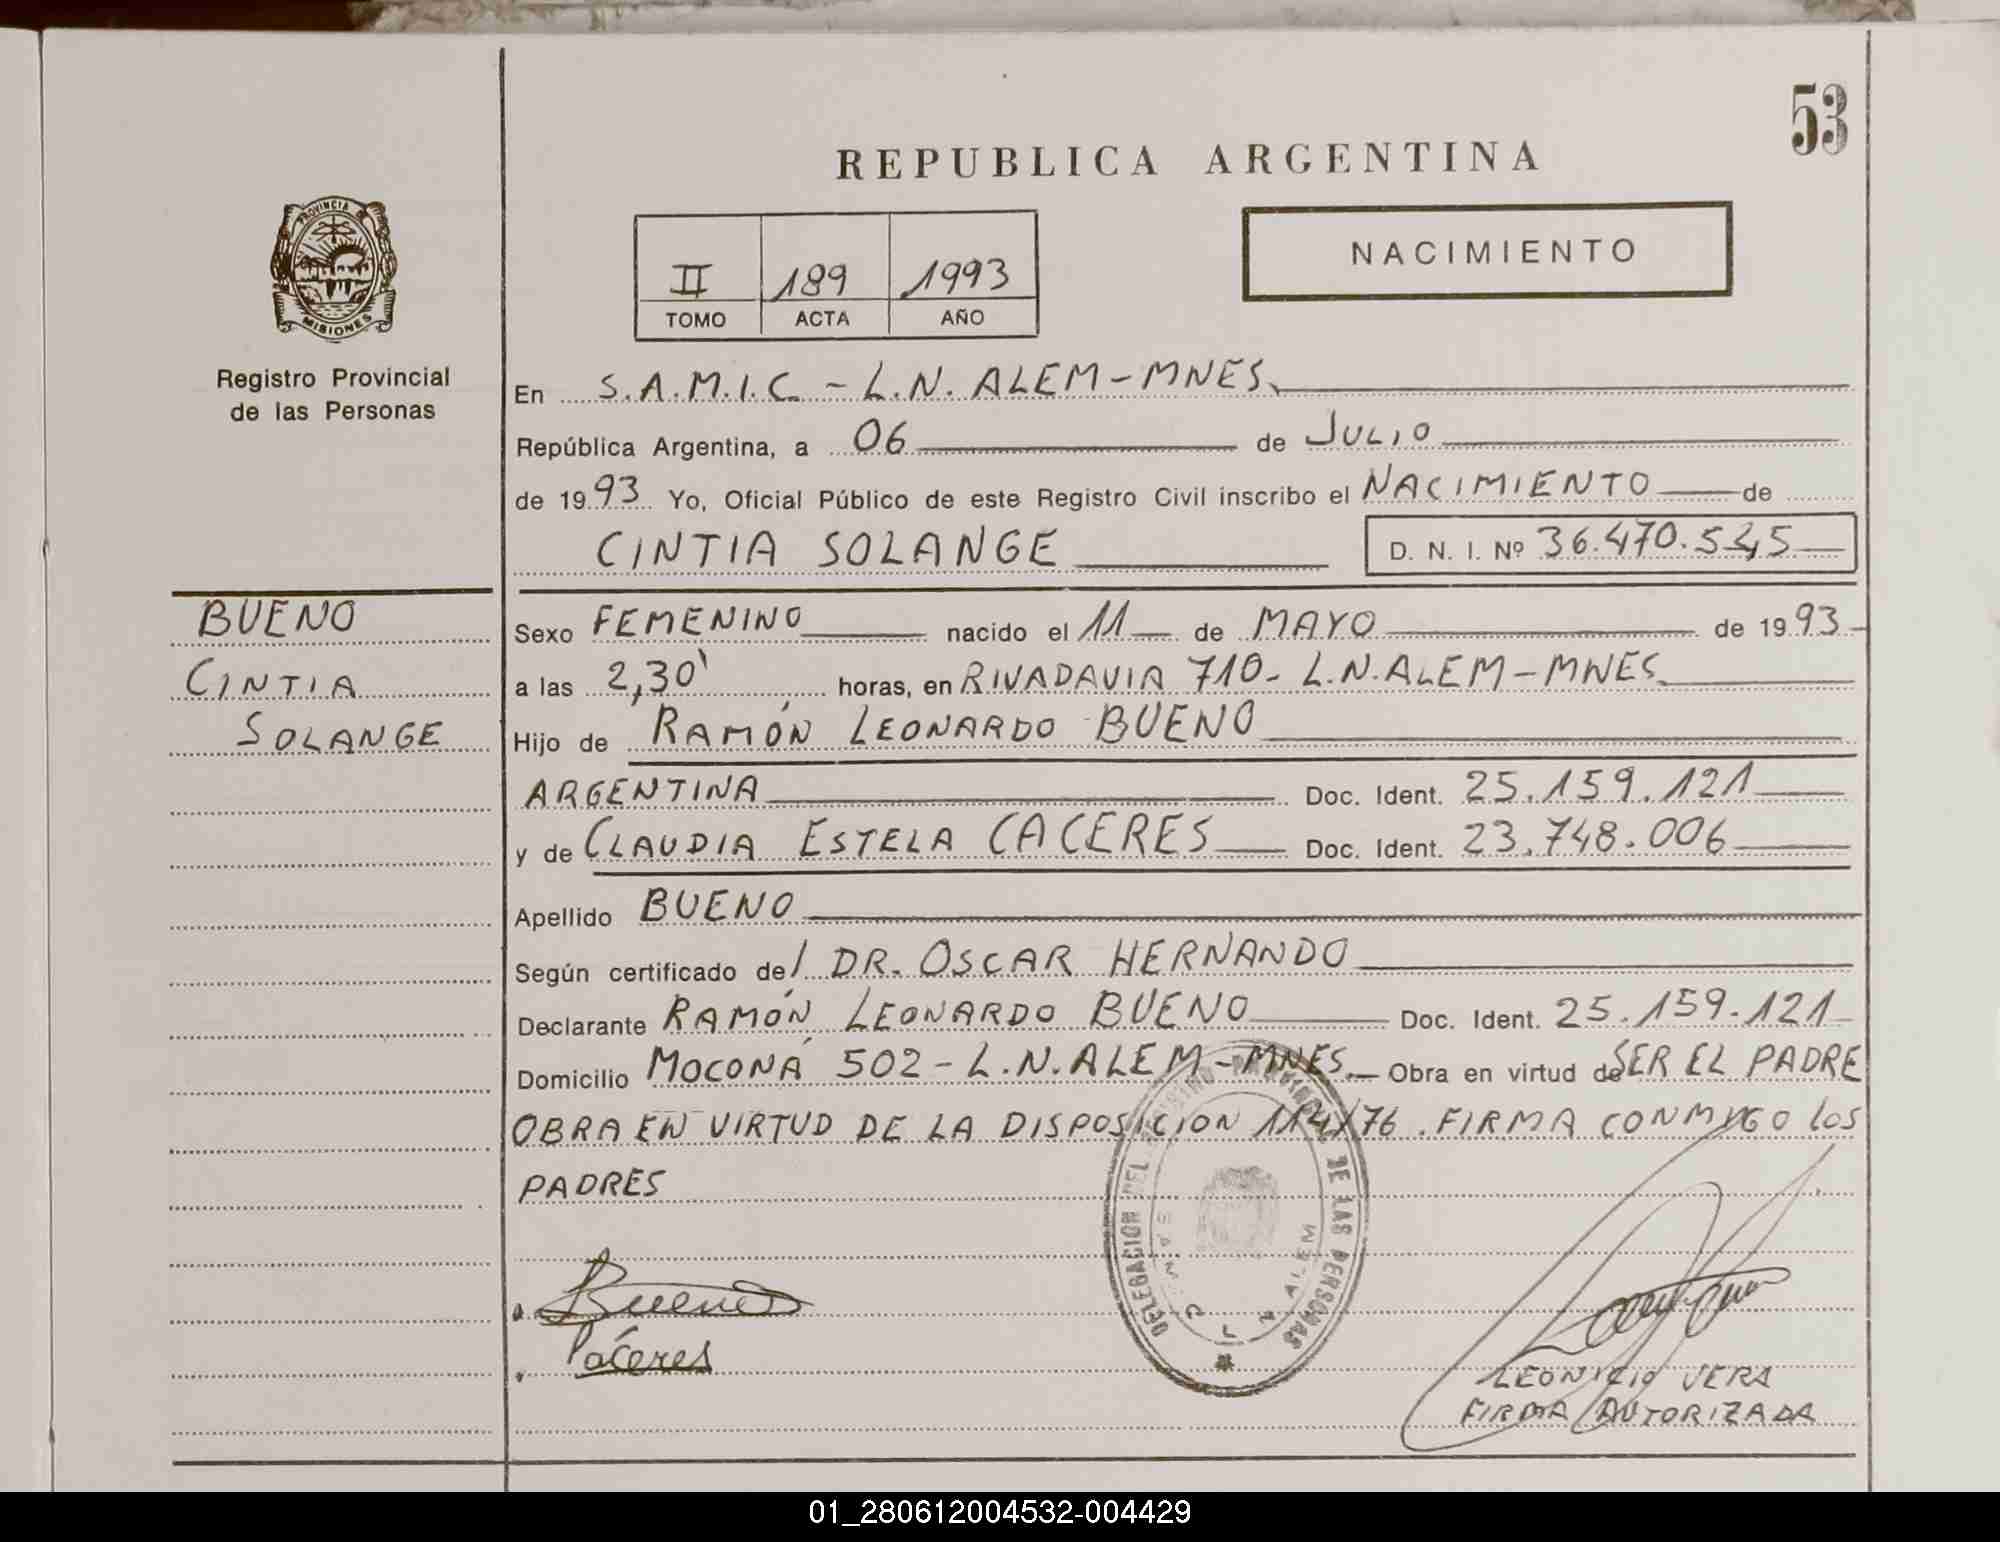 53
REPUBLICA ARGENTINA
PROVINCIA DE
MISIONES
Registro Provincial
de las Personas
II 189 1993
TOMO ACTA AÑO
NACIMIENTO
En S.A.M.I.C. - L.N. ALEM - MNES.
República Argentina, a 06 de JULIO
de 1993 Yo, Oficial Público de este Registro Civil inscribo el NACIMIENTO de
CINTIA SOLANGE D. N. I. Nº 36.470.525
BUENO
CINTIA
SOLANGE
Sexo FEMENINO nacido el 11 de MAYO de 1993
a las 2,30' horas, en RIVADAVIA 710- L.N. ALEM - MNES.
Hijo de RAMÓN LEONARDO BUENO
ARGENTINA Doc. Ident. 25.159.121
y de CLAUDIA ESTELA CACERES Doc. Ident. 23.748.006
Apellido BUENO
Según certificado del DR. OSCAR HERNANDO
Declarante RAMÓN LEONARDO BUENO Doc. Ident. 25.159.121
Domicilio MOCONÁ 502 - L.N. ALEM - MNES. Obra en virtud de SER EL PADRE
OBRA EN VIRTUD DE LA DISPOSICION 114/76. FIRMA CONMIGO LOS
PADRES
Bueno
Cáceres
DELEGACION DEL REGISTRO PROVINCIAL DE LAS PERSONAS
L. N. ALEM
LEONICIO VERA
FIRMA AUTORIZADA
01_280612004532-004429